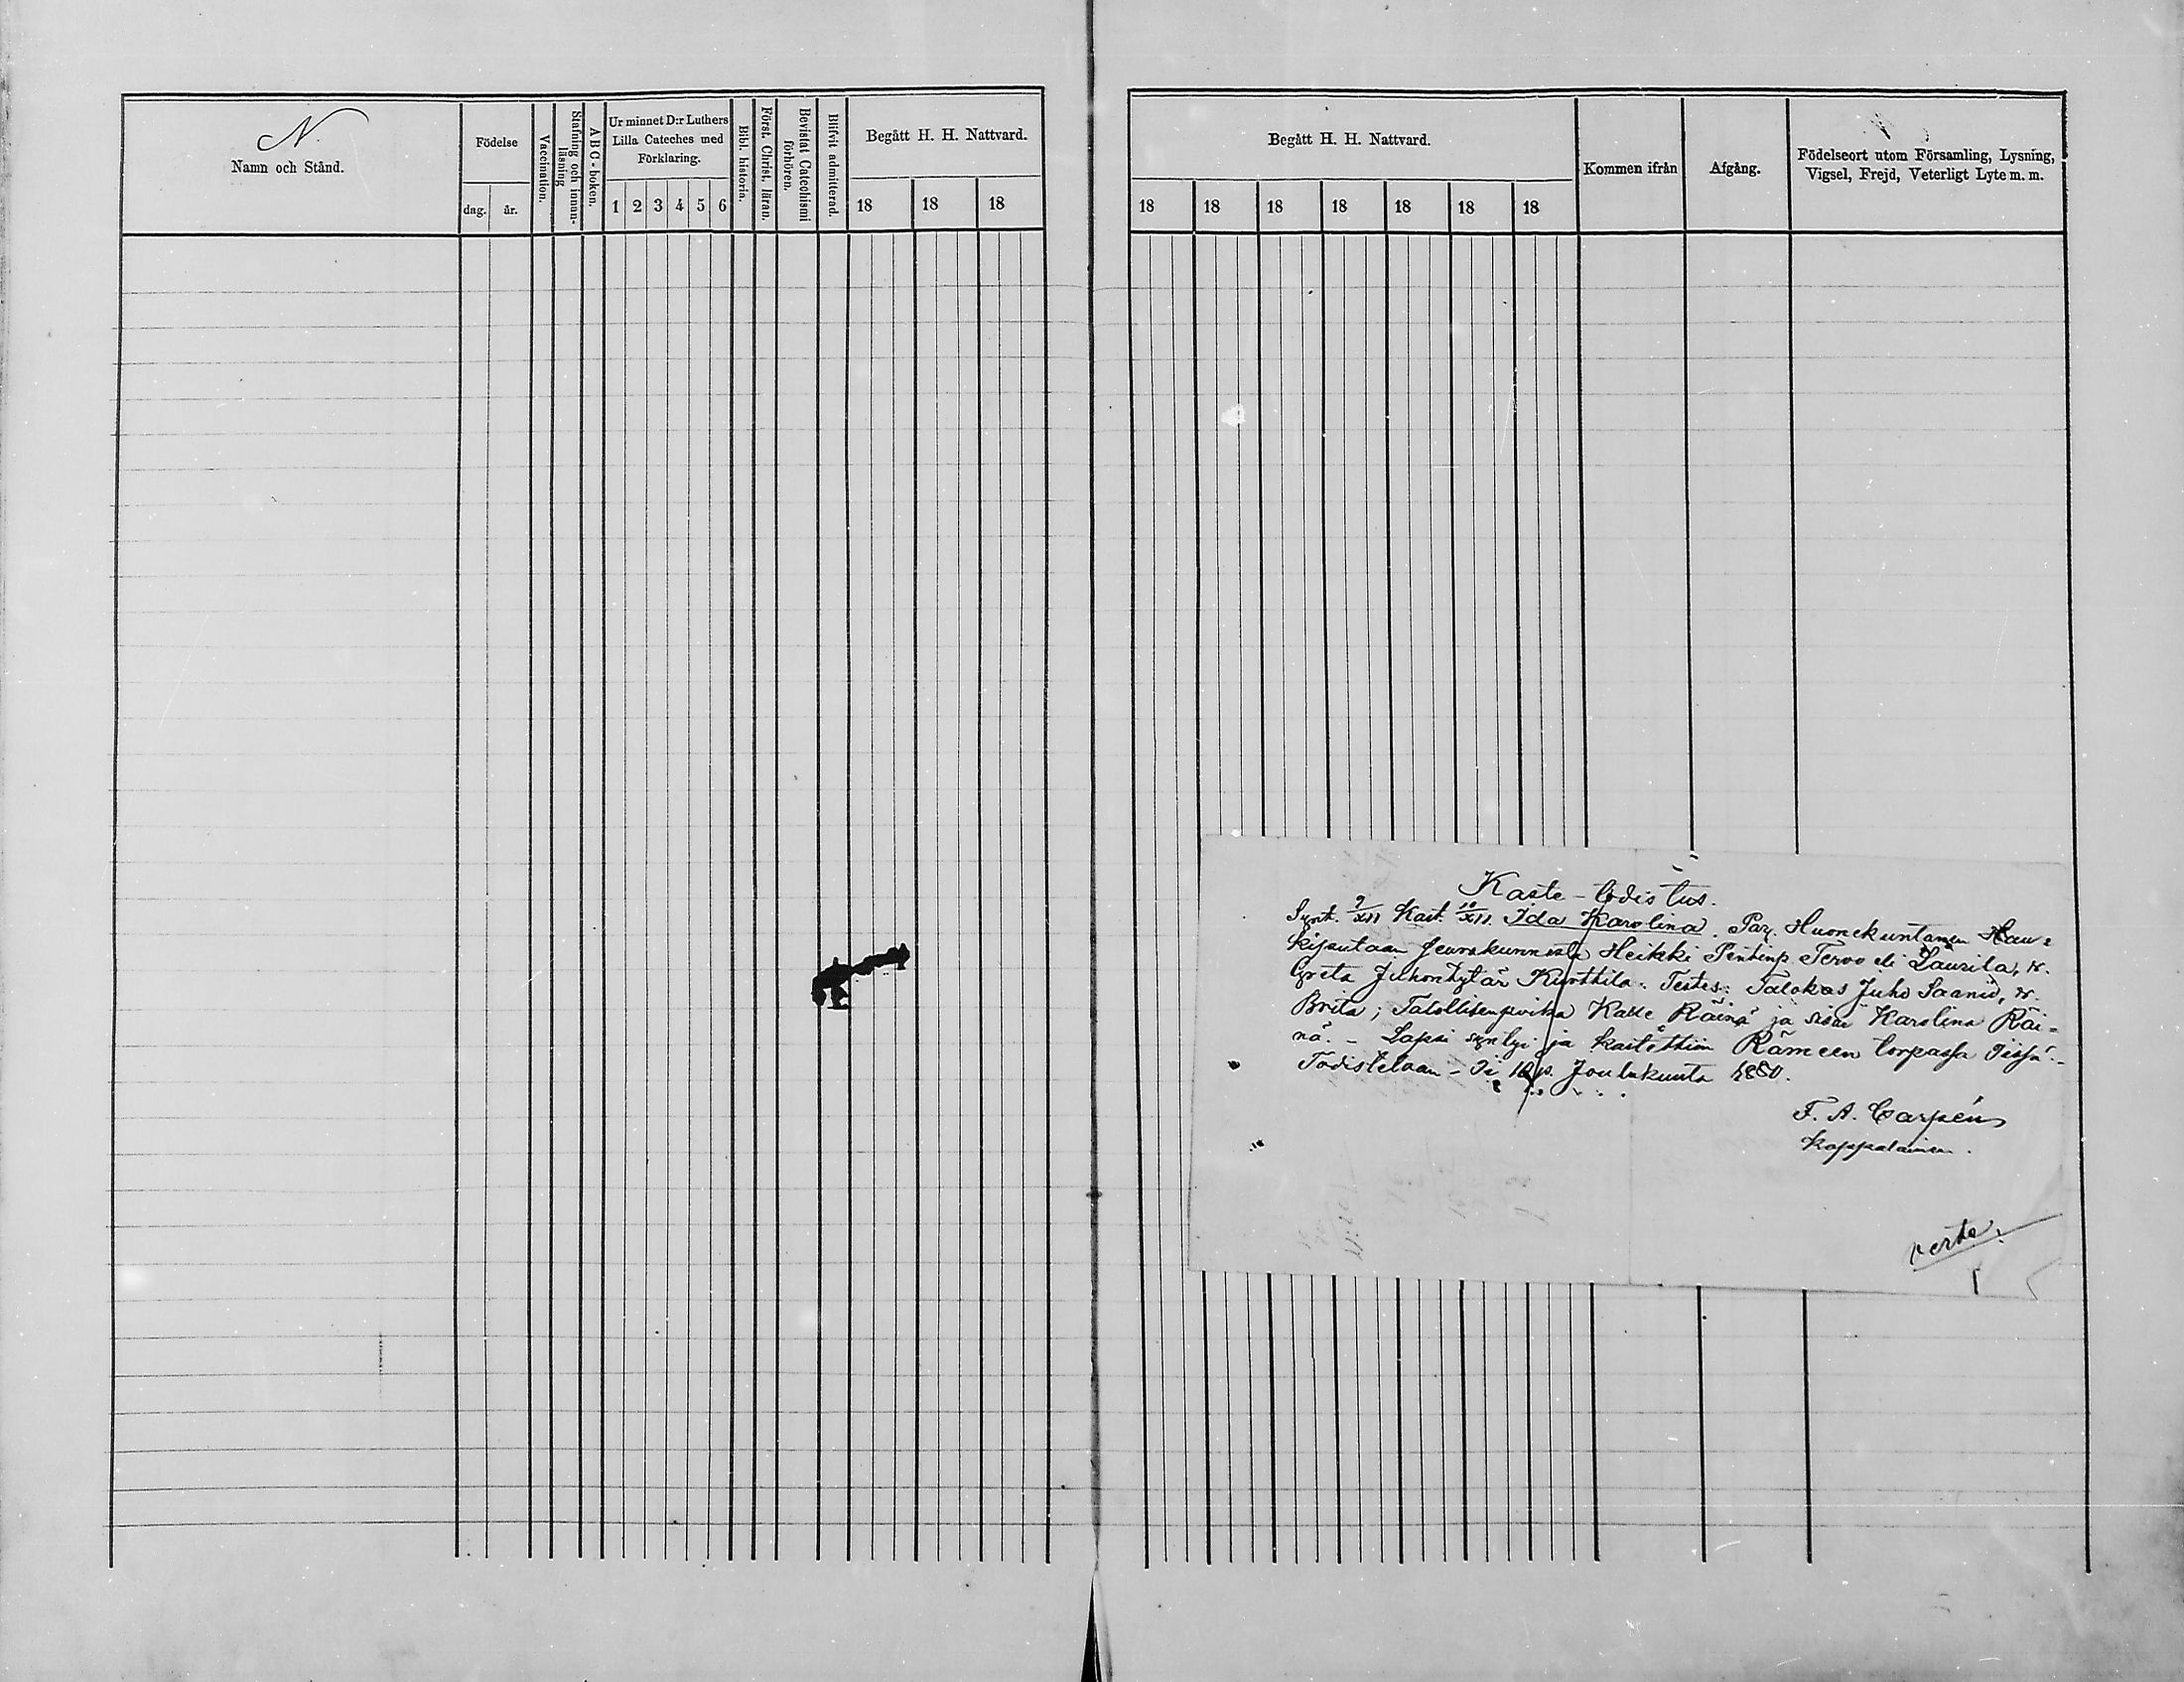 N.
Namn och Stånd.
Födelse
dag.
år.
Vaccination.
Stafning och innan-
läsning
A B C - boken.
Ur minnet D:r Luthers
Lilla Cateches med
Förklaring.
1 2 3 4 5 6
Bibl. historia.
Först. Christ. läran.
Bevistat Catechismi
förhören.
Blifvit admitterad.
Begått H. H. Nattvard.
18 18 18
Begått H. H. Nattvard.
18 18 18 18 18 18 18
Kommen ifrån
Afgång.
Födelseort utom Församling, Lysning,
Vigsel, Frejd, Veterligt Lyte m. m.
Kaste-todistus.
Synt. 9/XII Kast. 10/XII. Ida Karolina. Par. Huonekuntamen Hau-
kiputaan seurakunnasta Heikki Tervo eli Laurila, v.
Greta Juhontytär Kurttila. Testes: Talokas Juho Saanio, v.
Brita; Kalle Räinä ja sisar Karolina Räi-
nä. - Lapsi syntyi ja kastettiin Rämeen torpassa Iissä. -
Todistetaan - Ii Joulukuuta 1880.
F. A. Carpén
kappalainen.
verte.